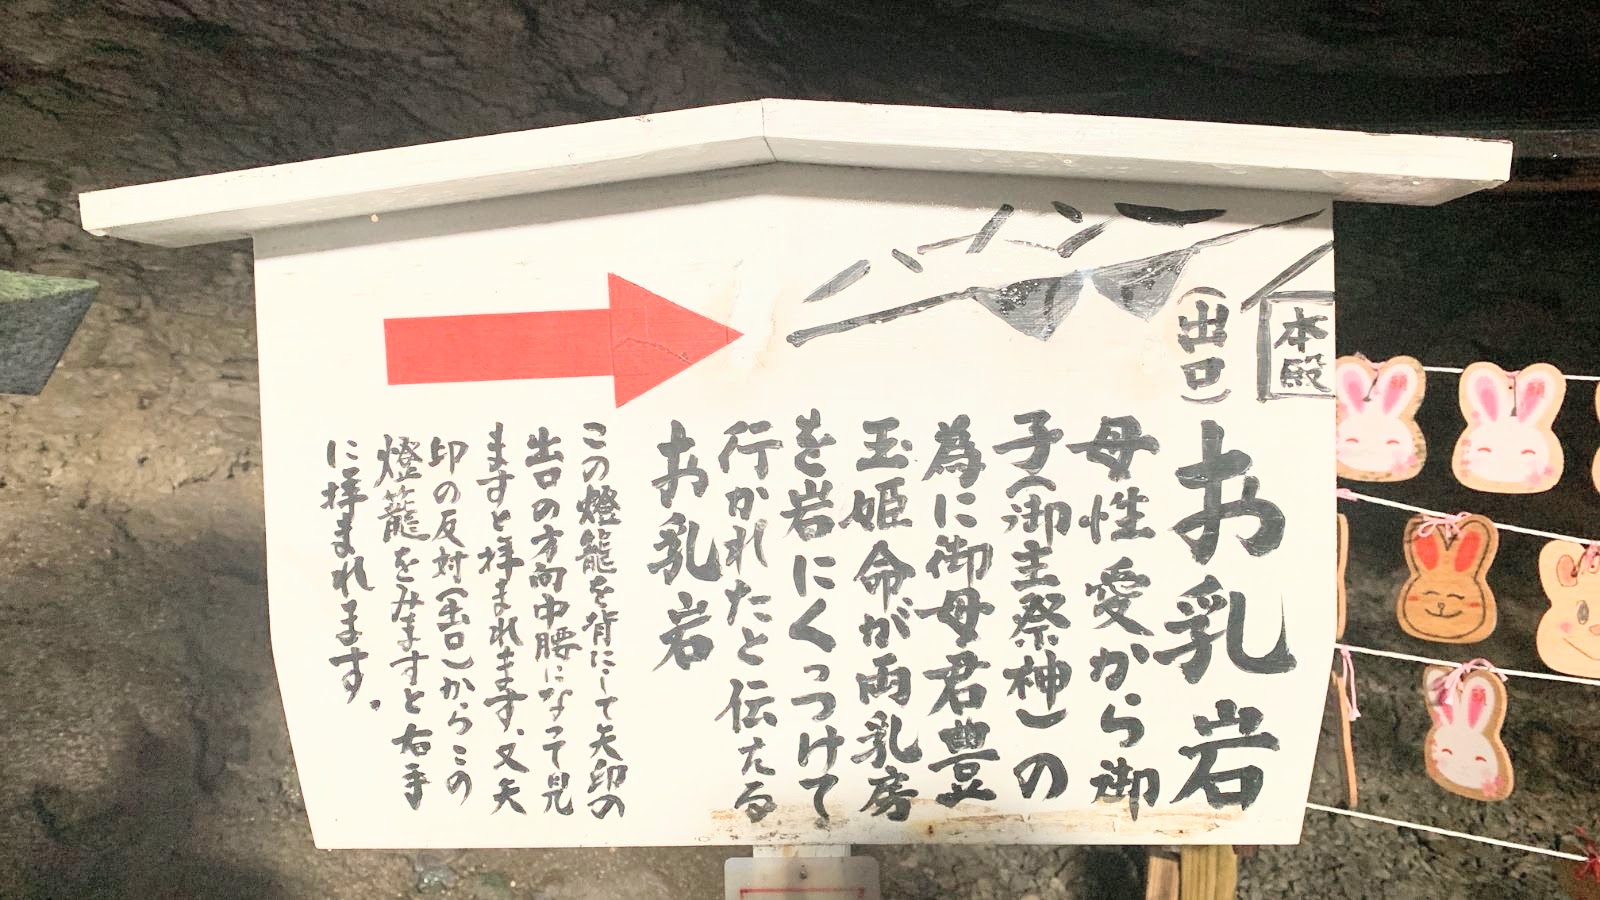 本殿
（出口）
お乳岩
母性愛から御
子（御主祭神）の
為に御母君豊
玉姫命が両乳房
を岩にくっつけて
行かれたと伝たる
お乳岩
この燈籠を背にして矢印の
出口の方向中腰になって見
ますと拝まれます、又矢
印の反対（出口）からこの
燈籠をみますと右手
に拝まれます。